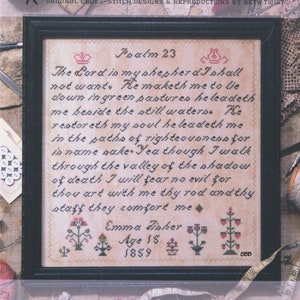 ORIGINAL CROSS-STITCH DESIGNS & REPRODUCTIONS BY BETH TWIST
Psalm 23
The Lord is my shepherd I shall
not want. He maketh me to lie
down in green pastures he leadeth
me beside the still waters. He
restoreth my soul he leadeth me
in the paths of righteousness for
is name sake. Yea though I walk
through the valley of the shadow
of death I will fear no evil for
thou art with me thy rod and thy
staff they comfort me
Emma Fisher
Age 18
1859